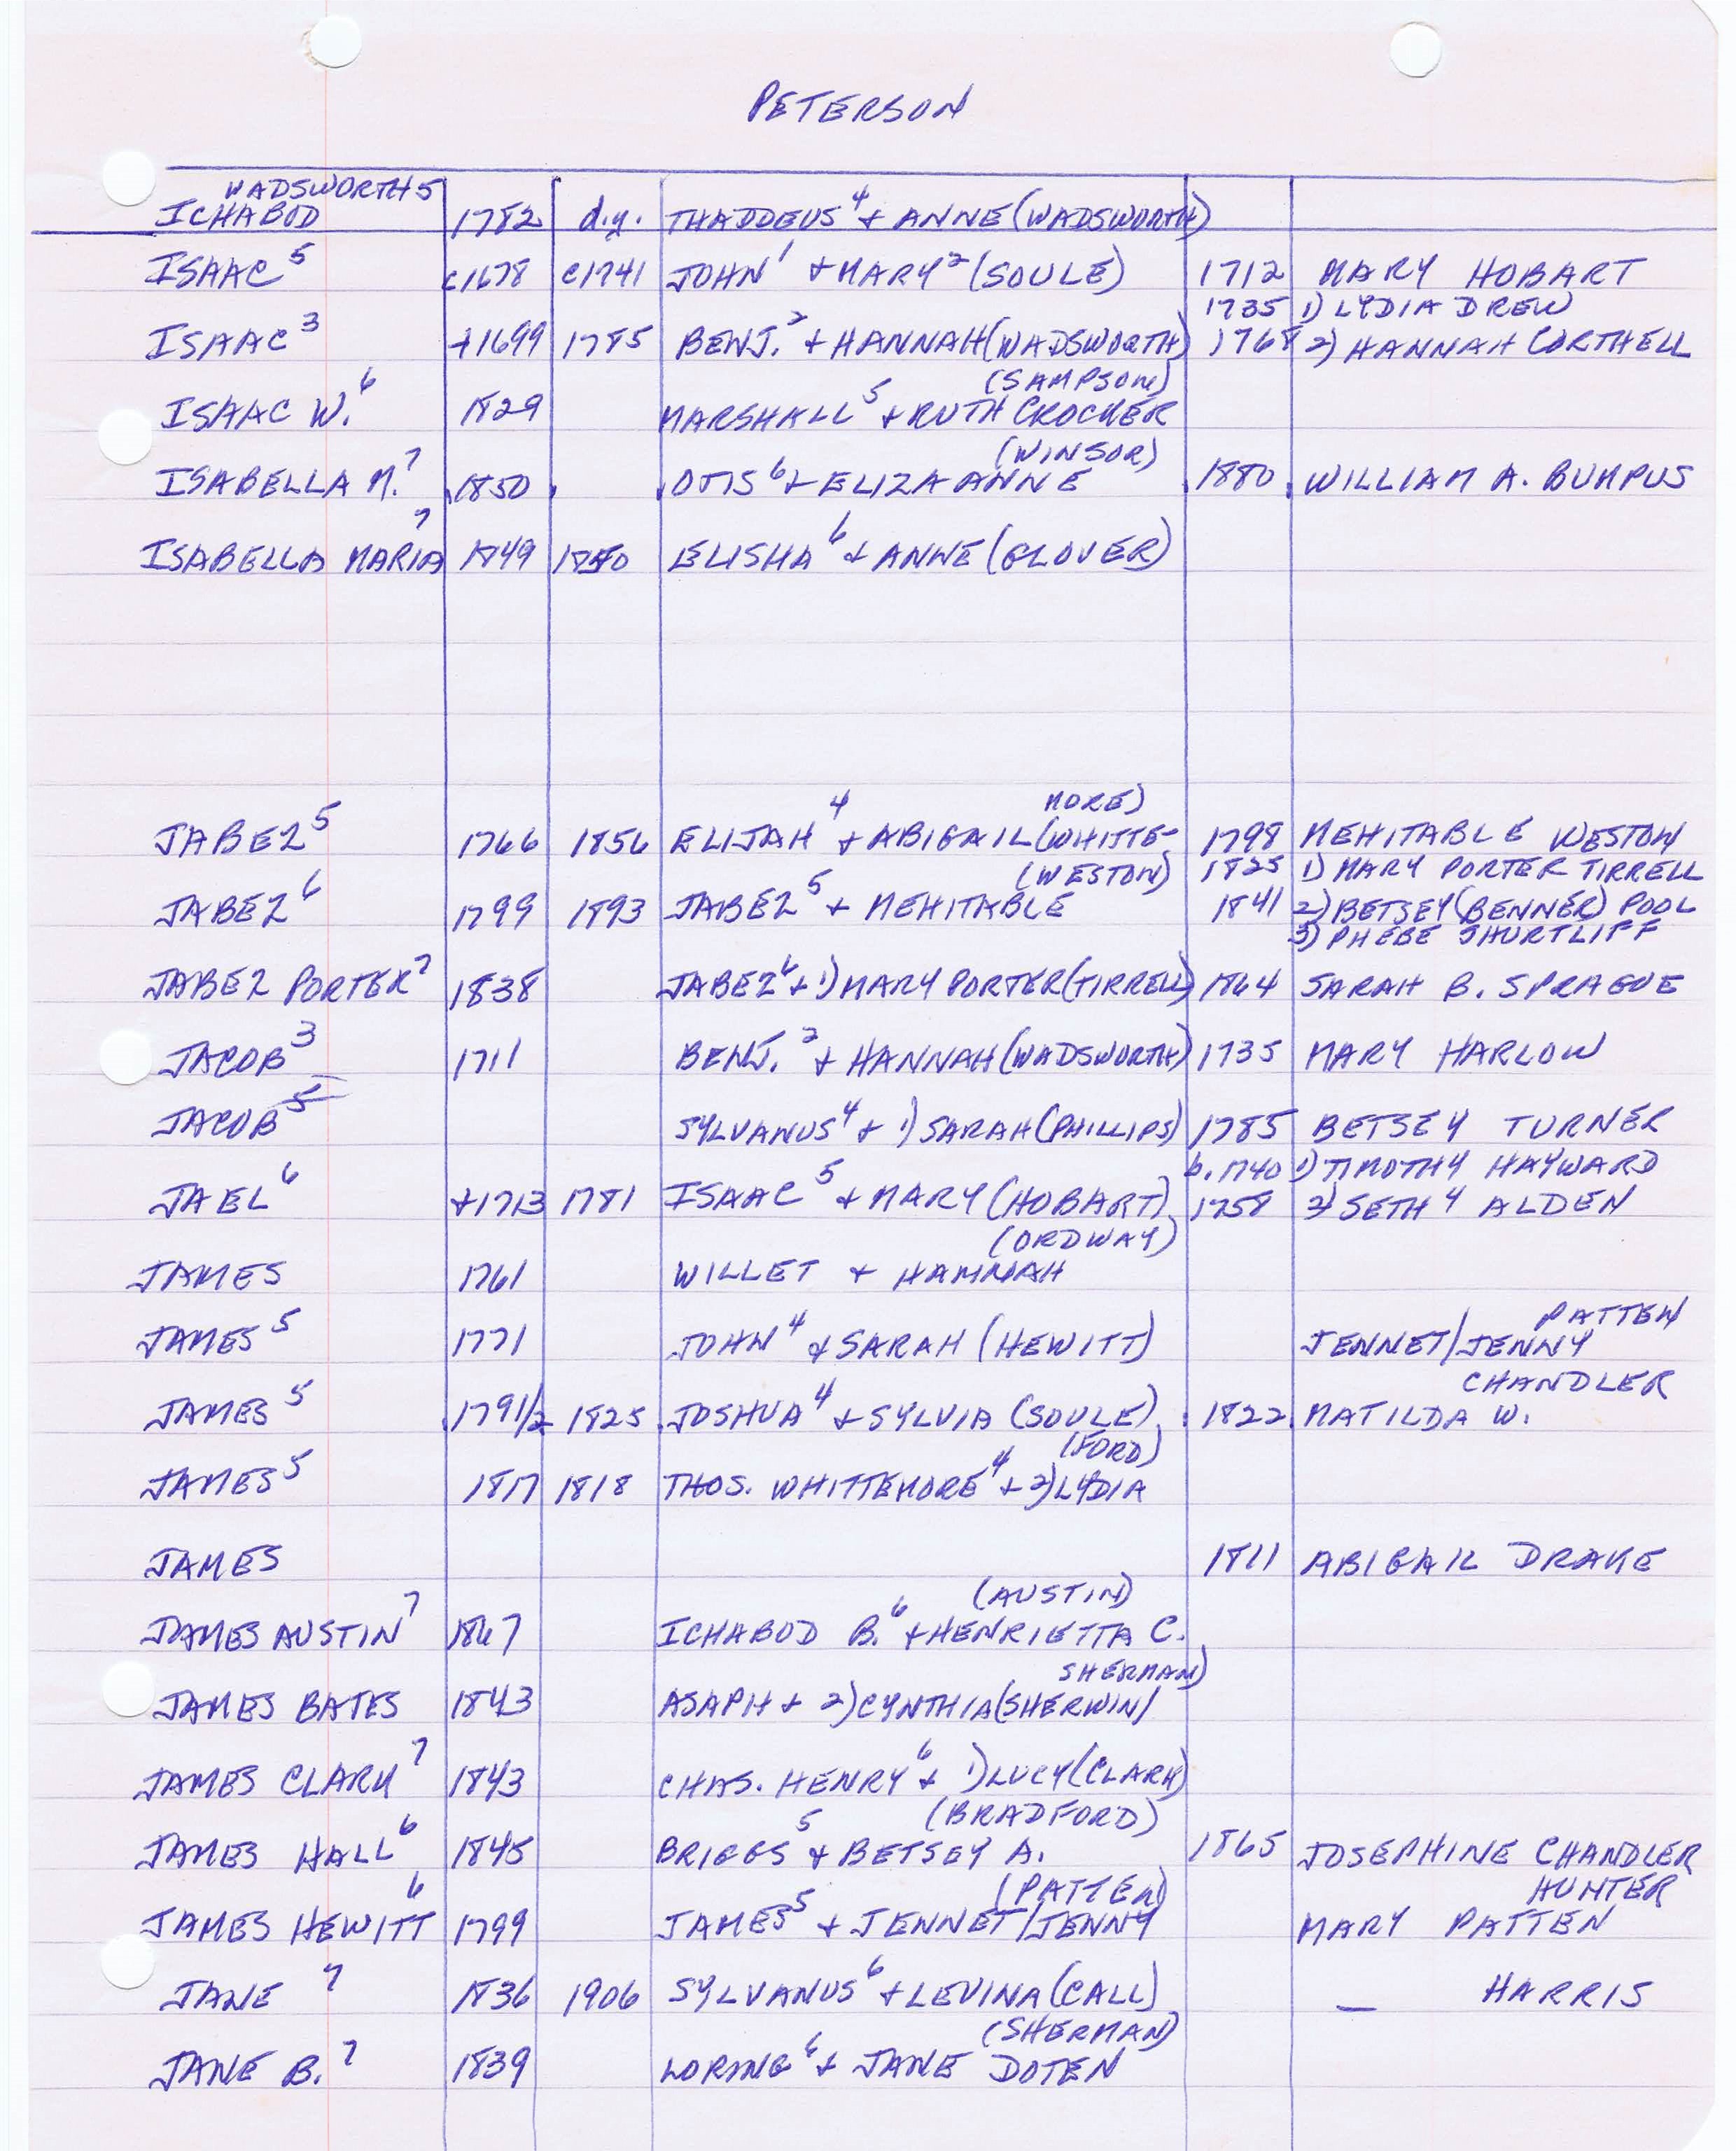 PETERSON
WADSWORTH 5
ICHABOD 1782 d.y. THADDEUS 4 + ANNE (WADSWORTH)
ISAAC 5 c1678 c1741 JOHN 1 + MARY 2 (SOULE) 1712 MARY HOBART
1735 1) LYDIA DREW
ISAAC 3 +1699 1785 BENJ. 2 + HANNAH (WADSWORTH) 1768 2) HANNAH CORTHELL
(SAMPSON)
ISAAC W. 6 1829 MARSHALL 5 + RUTH CROCKER
(WINSOR)
ISABELLA M. 7 1850 OTIS 6 + ELIZA ANNE 1880 WILLIAM A. BUMPUS
ISABELLA MARIA 7 1849 1850 ELISHA 6 + ANNE (GLOVER)
MORE)
JABEZ 5 1766 1856 ELIJAH 4 + ABIGAIL (WHITTE- 1798 MEHITABLE WESTON
(WESTON) 1825 1) MARY PORTER TIRRELL
JABEZ 6 1799 1893 JABEZ 5 + MEHITABLE 1841 2) BETSEY (BENNER) POOL
3) PHEBE SHURTLIFF
JABEZ PORTER 7 1838 JABEZ 6 + 1) MARY PORTER (TIRRELL) 1864 SARAH B. SPRAGUE
JACOB 3 1711 BENJ. 2 + HANNAH (WADSWORTH) 1735 MARY HARLOW
JACOB 5 SYLVANUS 4 + 1) SARAH (PHILLIPS) 1785 BETSEY TURNER
b. 1740 1) TIMOTHY HAYWARD
JAEL 6 +1713 1781 ISAAC 5 + MARY (HOBART) 1758 2) SETH 4 ALDEN
(ORDWAY)
JAMES 1761 WILLET + HANNAH
PATTEN
JAMES 5 1771 JOHN 4 + SARAH (HEWITT) JENNET/JENNY
CHANDLER
JAMES 5 1791/2 1825 JOSHUA 4 + SYLVIA (SOULE) 1822 MATILDA W.
(FORD)
JAMES 5 1817 1818 THOS. WHITTEMORE 4 + 2) LYDIA
JAMES 1811 ABIGAIL DRAKE
(AUSTIN)
JAMES AUSTIN 7 1867 ICHABOD B. 6 + HENRIETTA C.
SHERMAN)
JAMES BATES 1843 ASAPH + 2) CYNTHIA (SHERWIN/
JAMES CLARK 7 1843 CHAS. HENRY 6 + 1) LUCY (CLARK)
(BRADFORD)
JAMES HALL 6 1845 BRIGGS 5 + BETSEY A. 1865 JOSEPHINE CHANDLER
(PATTEN) HUNTER
JAMES HEWITT 6 1799 JAMES 5 + JENNET/JENNY MARY PATTEN
JANE 7 1836 1906 SYLVANUS 6 + LEVINA (CALL) — HARRIS
(SHERMAN)
JANE B. 7 1839 LORING 6 + JANE DOTEN